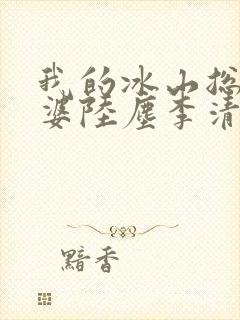 我的冰山总
婆陆尘李清
黯香